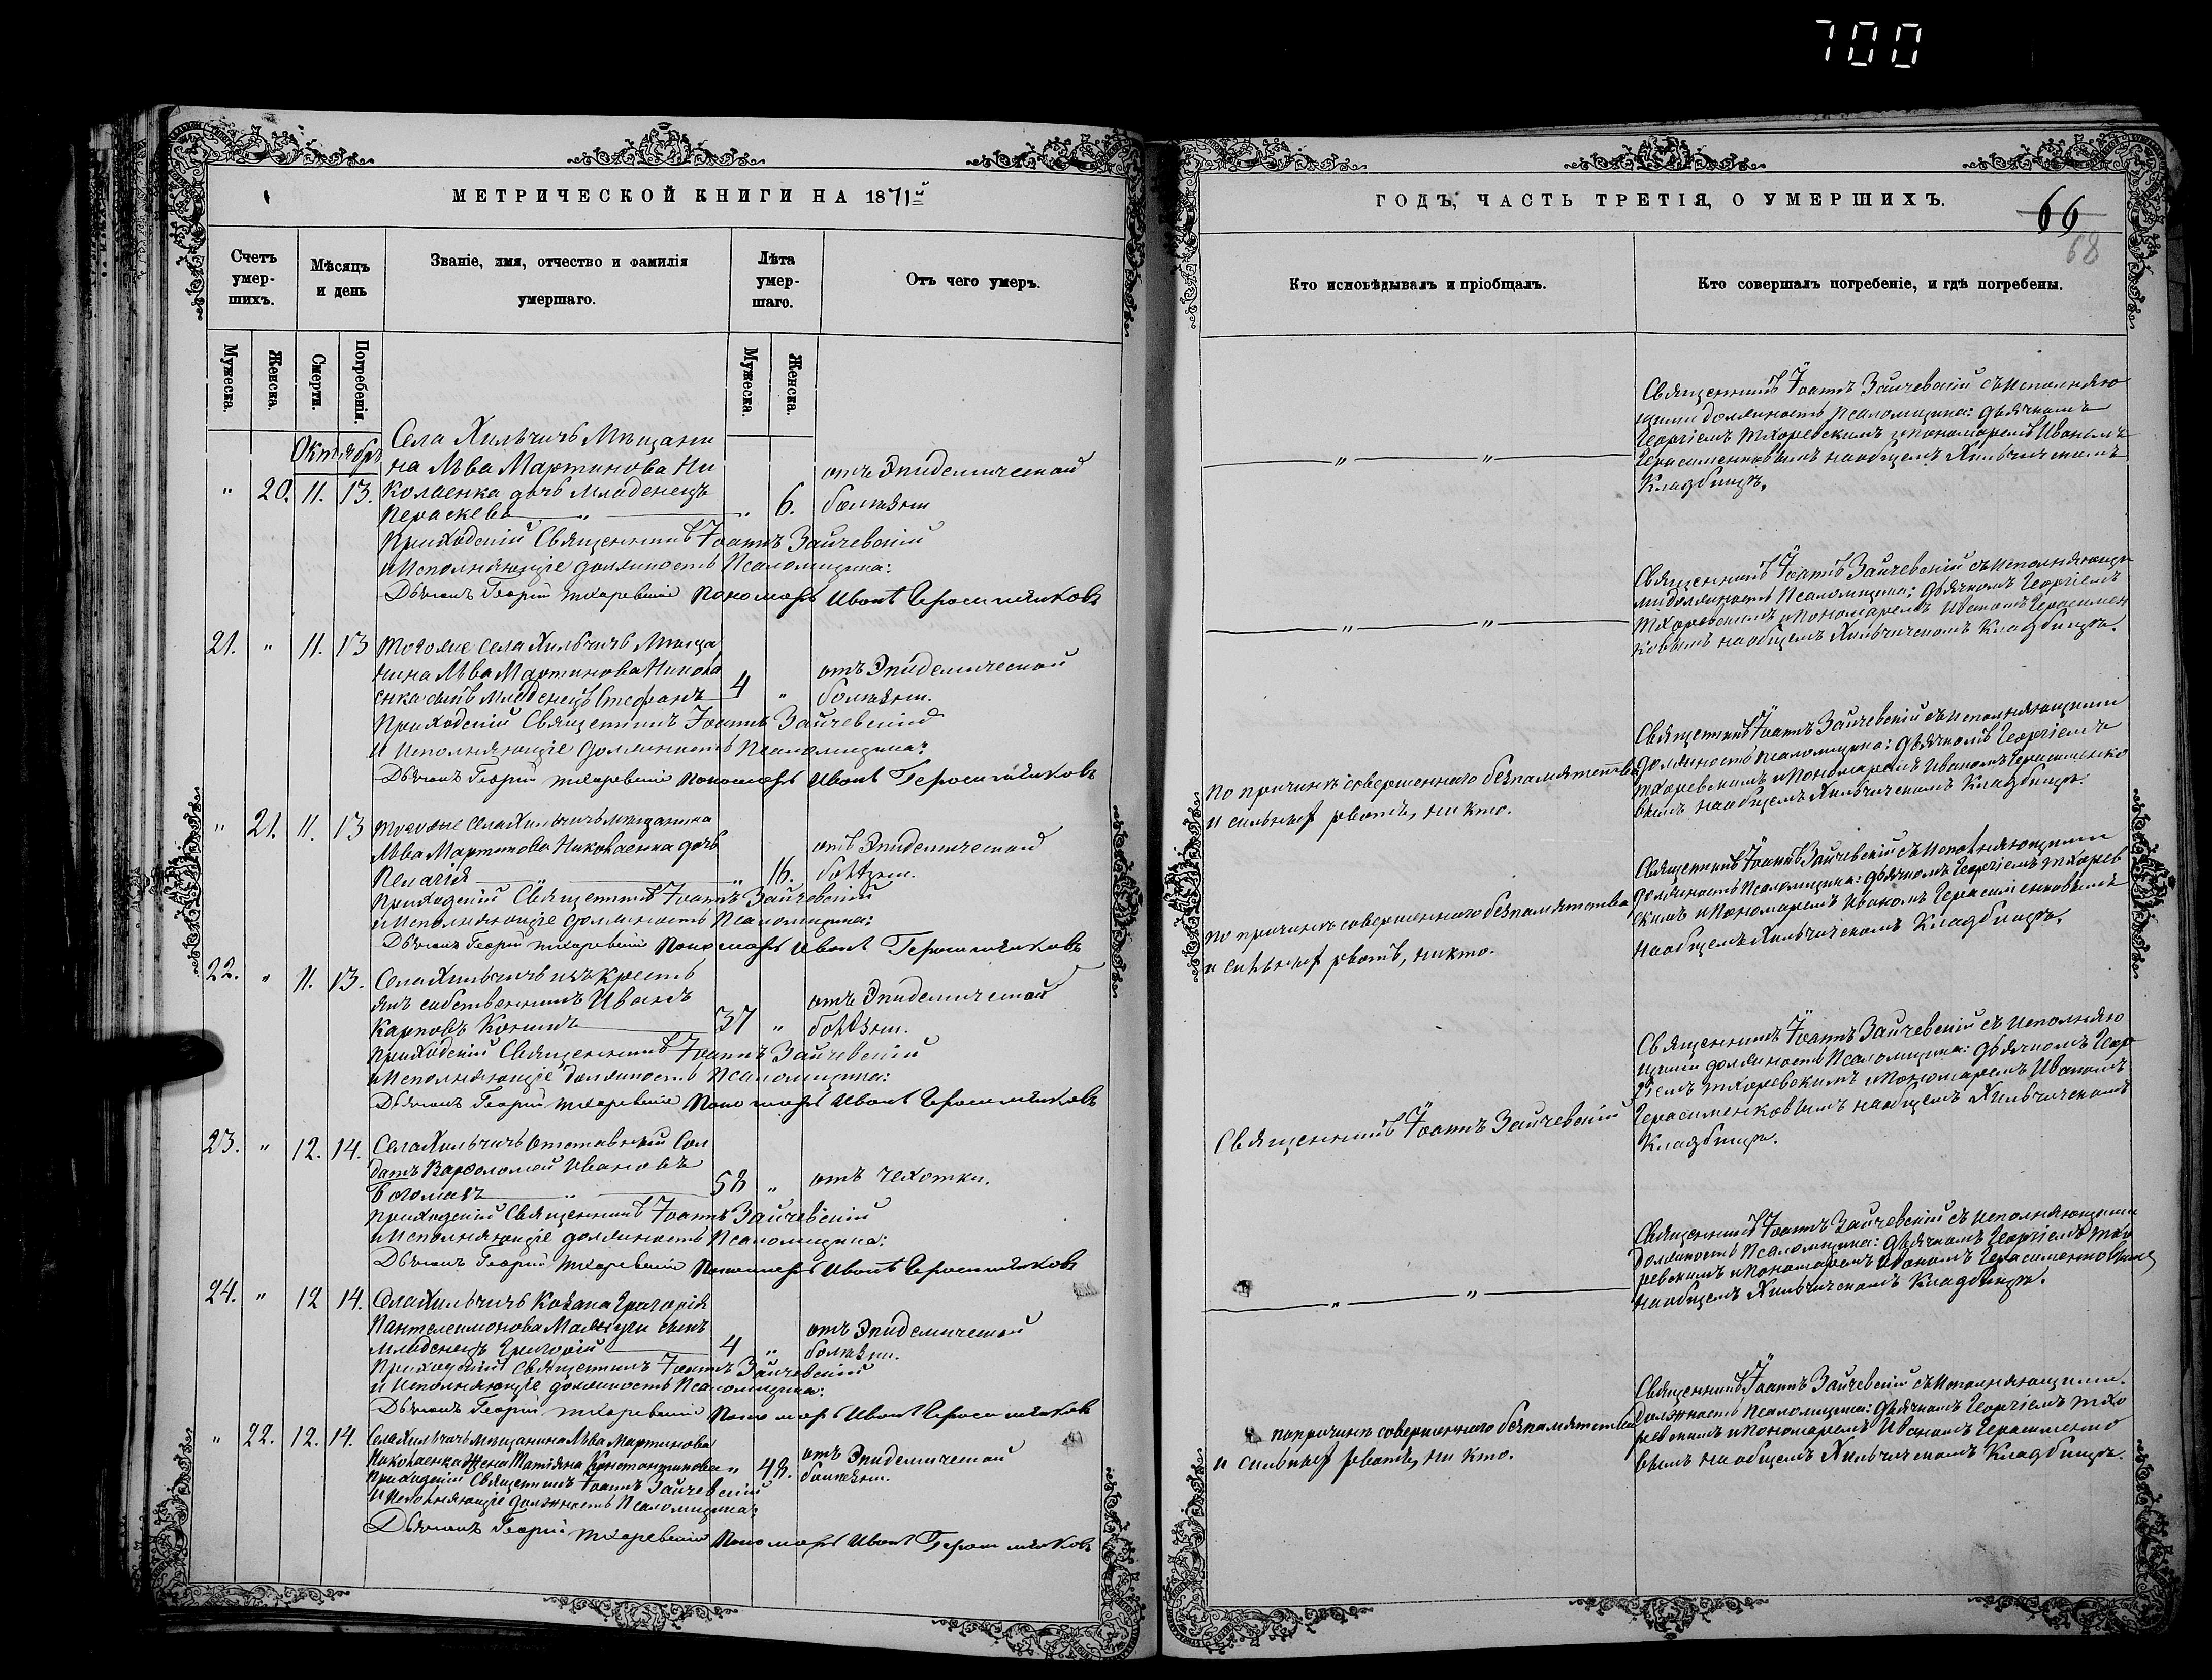 700
МЕТРИЧЕСКОЙ КНИГИ НА 1871й
Счетъ умер-шихъ.
Мѣсяцъ и день
Званіе, имя, отчество и фамилія
умершаго.
Лѣта умер-шаго.
Отъ чего умеръ.
Мужеска.
Женска.
Смерти.
Погребенія.
Мужеска.
Женска.
Октябрь
Села Хильчичъ Мѣщани
на Льва Мартинова Ни
" 20. 11. 13. колаенка дочь младенецъ
Параскева " " 6. отъ Эпидемической болѣзни
Приходскій Священникъ Іоаннъ Зайчевскій
и Исполняющіе должность Псаломщика:
Дьячокъ Георгій Тхоревскій Пономарь Иванъ Герасименковъ
21. " 11. 13 Тогоже села Хильчичъ Мѣща
нина Льва Мартинова Никола
енка сынъ младенецъ Стефанъ 4 " отъ Эпидемической болѣзни.
Приходскій Священникъ Іоаннъ Зайчевскій
и Исполняющіе должность Псаломщика:
Дьячокъ Георгій Тхоревскій Пономарь Иванъ Герасименковъ
" 21. 11. 13 Тогоже села Хильчичъ мѣщанина
Льва Мартинова Николаенка дочь
Пелагія " 16. отъ Эпидемической болѣзни.
Приходскій Священникъ Іоаннъ Зайчевскій
и Исполняющіе должность Псаломщика:
Дьячокъ Георгій Тхоревскій Пономарь Иванъ Герасименковъ
22. " 11. 13. Села Хильчичъ изъ кресть
янъ собственникъ Иванъ
Карповъ 37 " отъ Эпидемической болѣзни.
Приходскій Священникъ Іоаннъ Зайчевскій
и Исполняющіе должность Псаломщика:
Дьячокъ Георгій Тхоревскій Пономарь Иванъ Герасименковъ
23. " 12. 14. Села Хильчичъ Отставный Сол
датъ Варфоломей Ивановъ
Богомазъ " 58 " отъ чехотки.
Приходскій Священникъ Іоаннъ Зайчевскій
и Исполняющіе должность Псаломщика:
Дьячокъ Георгій Тхоревскій Пономарь Иванъ Герасименковъ
24. " 12 14. Села Хильчичъ Козака Григорія
Пантелеимонова сынъ
младенецъ Григорій 4 " отъ Эпидемической болѣзни.
Приходскій Священникъ Іоаннъ Зайчевскій
и Исполняющіе должность Псаломщика:
Дьячокъ Георгій Тхоревскій Пономарь Иванъ Герасименковъ
" 22. 12. 14. Села Хильчичъ мѣщанина Льва Мартинова
Николаенка Жена Татіяна Константинова " 48. отъ Эпидемической болѣзни.
Приходскій Священникъ Іоаннъ Зайчевскій
и Исполняющіе должность Псаломщика:
Дьячокъ Георгій Тхоревскій Пономарь Иванъ Герасименковъ
ГОДЪ, ЧАСТЬ ТРЕТІЯ, О УМЕРШИХЪ.
66
68
Кто исповѣдывалъ и пріобщалъ.
Кто совершалъ погребеніе, и гдѣ погребены.
" "
Священникъ Іоаннъ Зайчевскій съ Исполняю
щими должность Псаломщика: дьячкомъ
Георгіемъ Тхоревскимъ и Пономаремъ Иваномъ
Герасименковымъ на общемъ Хильчичскомъ
Кладбищѣ.
" "
Священникъ Іоаннъ Зайчевскій съ Исполняющи
ми должность Псаломщика: Дьячкомъ Георгіемъ
Тхоревскимъ и Пономаремъ Иваномъ Герасимен
ковымъ на общемъ Хильчичскомъ Кладбищѣ.
по причинѣ совершеннаго безпамятства
и сильныхъ рвотъ, никто.
Священникъ Іоаннъ Зайчевскій съ Исполняющими
должность Псаломщика: Дьячкомъ Георгіемъ
Тхоревскимъ и Пономаремъ Иваномъ Герасименко
вымъ на общемъ Хильчичскомъ Кладбищѣ.
по причинѣ совершеннаго безпамятства
и сильныхъ рвотъ, никто.
Священникъ Іоаннъ Зайчевскій съ Исполняющими
должность Псаломщика: Дьячкомъ Георгіемъ Тхорев
скимъ и Пономаремъ Иваномъ Герасименковымъ
на общемъ Хильчичскомъ Кладбищѣ.
Священникъ Іоаннъ Зайчевскій
Священникъ Іоаннъ Зайчевскій съ Исполняю
щими должность Псаломщика: Дьячкомъ Геор
гіемъ Тхоревскимъ и Пономаремъ Иваномъ
Герасименковымъ на общемъ Хильчичскомъ
Кладбищѣ.
" "
Священникъ Іоаннъ Зайчевскій съ Исполняющими
должность Псаломщика: Дьячкомъ Георгіемъ Тхо
ревскимъ и Пономаремъ Иваномъ Герасименковымъ
на общемъ Хильчичскомъ Кладбищѣ.
по причинѣ совершеннаго безпамятства
и сильныхъ рвотъ, никто.
Священникъ Іоаннъ Зайчевскій съ Исполняющими
должность Псаломщика: Дьячкомъ Георгіемъ Тхо
ревскимъ и Пономаремъ Иваномъ Герасименко
вымъ на общемъ Хильчичскомъ Кладбищѣ.